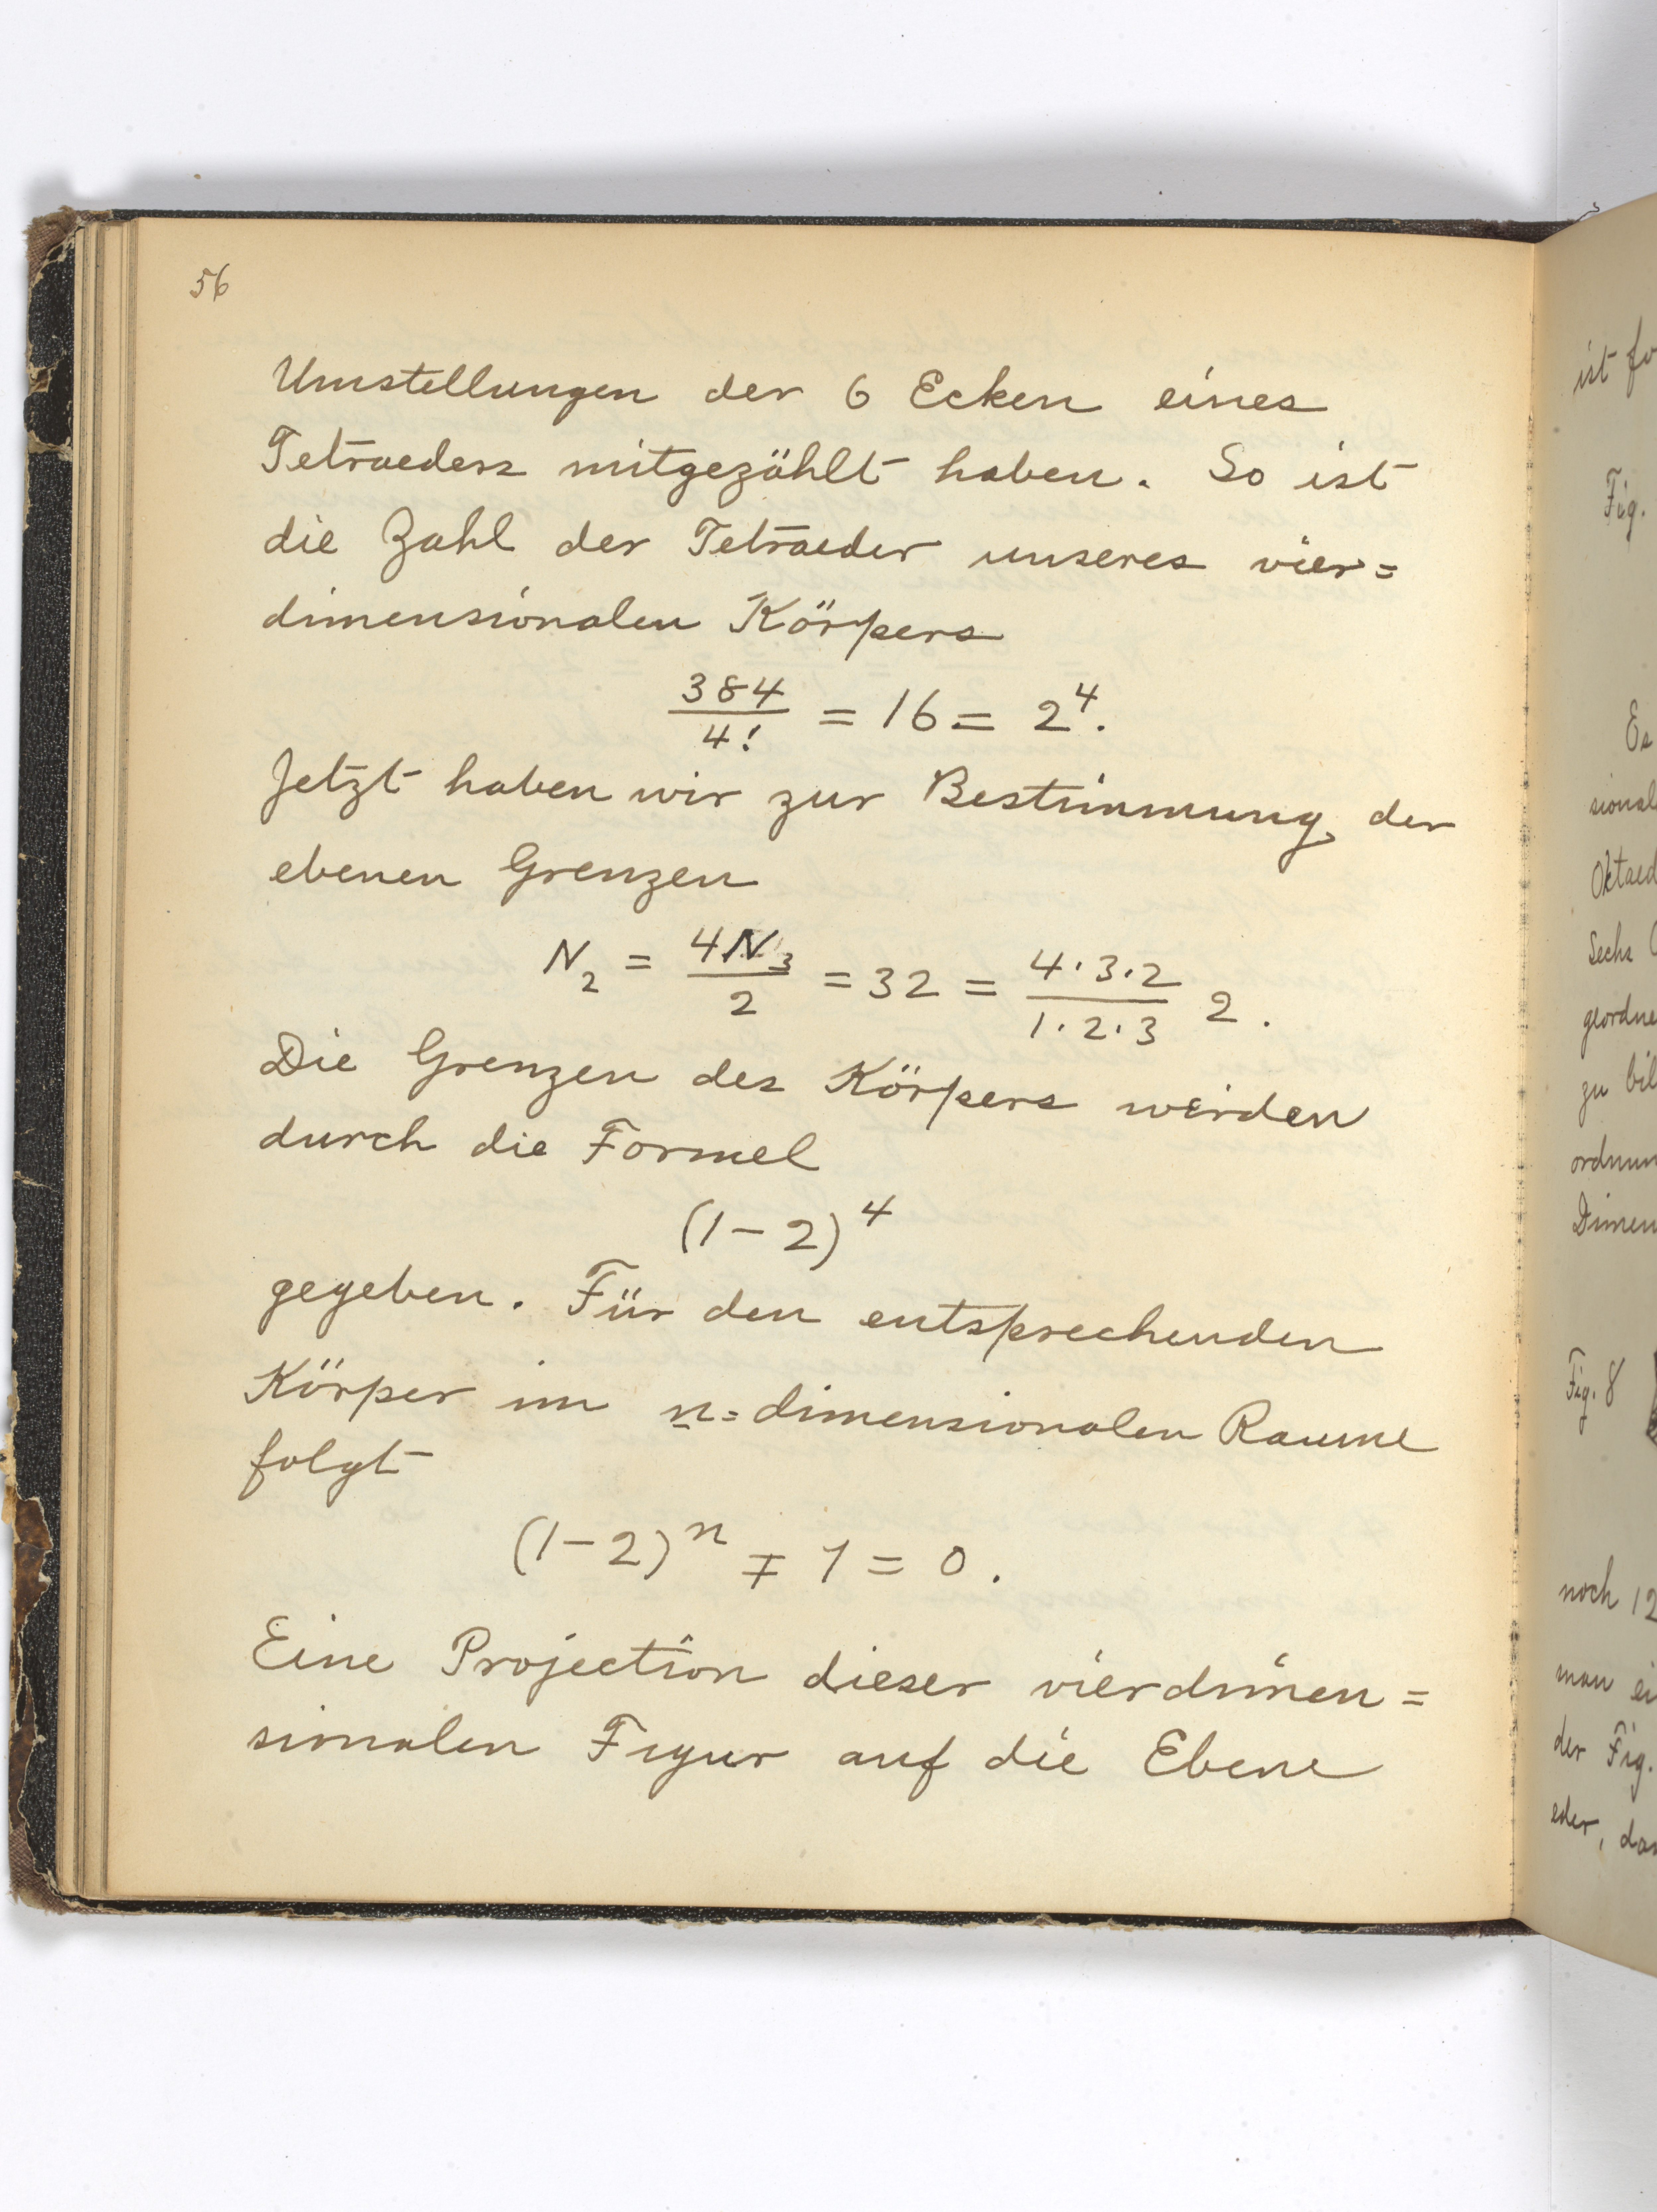 56
Umstellungen der 6 Ecken eines
Tetraeders mitgezählt haben. So ist
die Zahl der Tetraeder unseres vier=
dimensionalen Körpers
384/4! = 16 = 2⁴.
Jetzt haben wir zur Bestimmung der
ebenen Grenzen
N₂ = 4N₃/2 = 32 = 4·3·2/1·2·3 2.
Die Grenzen des Körpers werden
durch die Formel
(1-2)⁴
gegeben. Für den entsprechenden
Körper im n=dimensionalen Raume
folgt
(1-2)ⁿ ∓ 1 = 0.
Eine Projection dieser vierdimen=
sionalen Figur auf die Ebene
ist
Fig.
Es
Sechs
zu
Fig. 8
noch 12
man
der Fig.